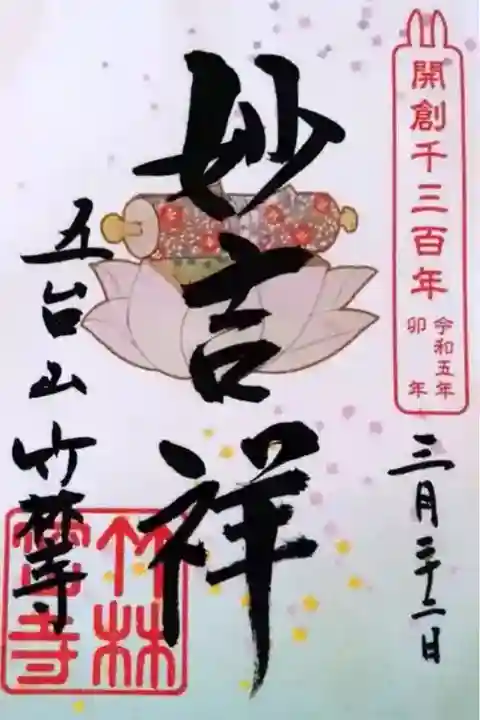 開創千三百年
令和五年
卯年
三月二十二日
妙吉祥
五台山竹林寺
竹林
寺